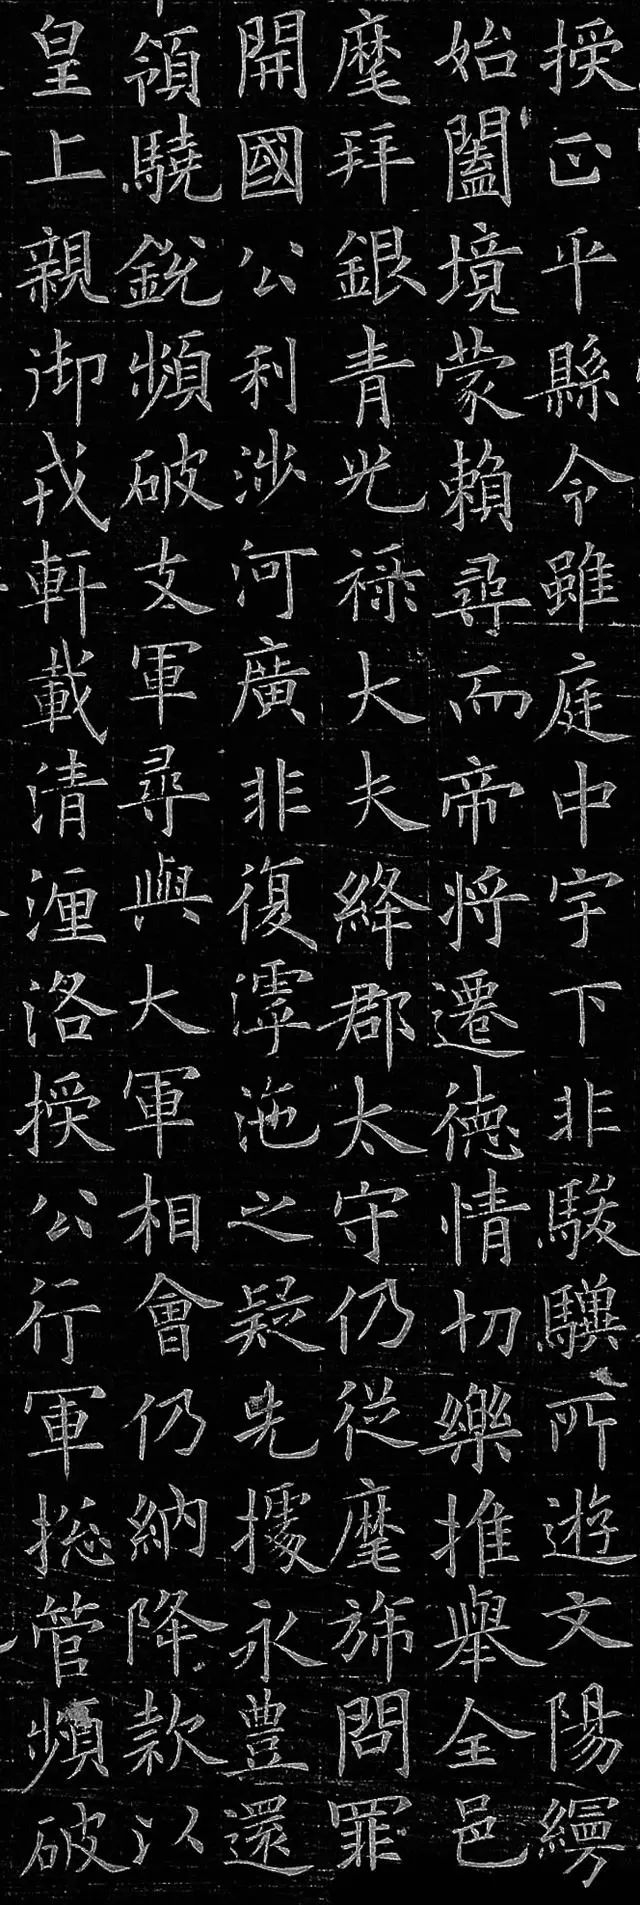 授正平縣令雖庭中宇下非駿驥所遊文陽縛
始闔境蒙賴尋而帝將遷德情切樂推舉全邑
麾拜銀青光祿大夫絳郡太守仍從麾旆問罪
開國公利涉河廣非復滹沲之疑先據永豊還
領驍銳頻破支軍尋與大軍相會仍納降款以
皇上親御戎軒載清瀍洛授公行軍総管頻破